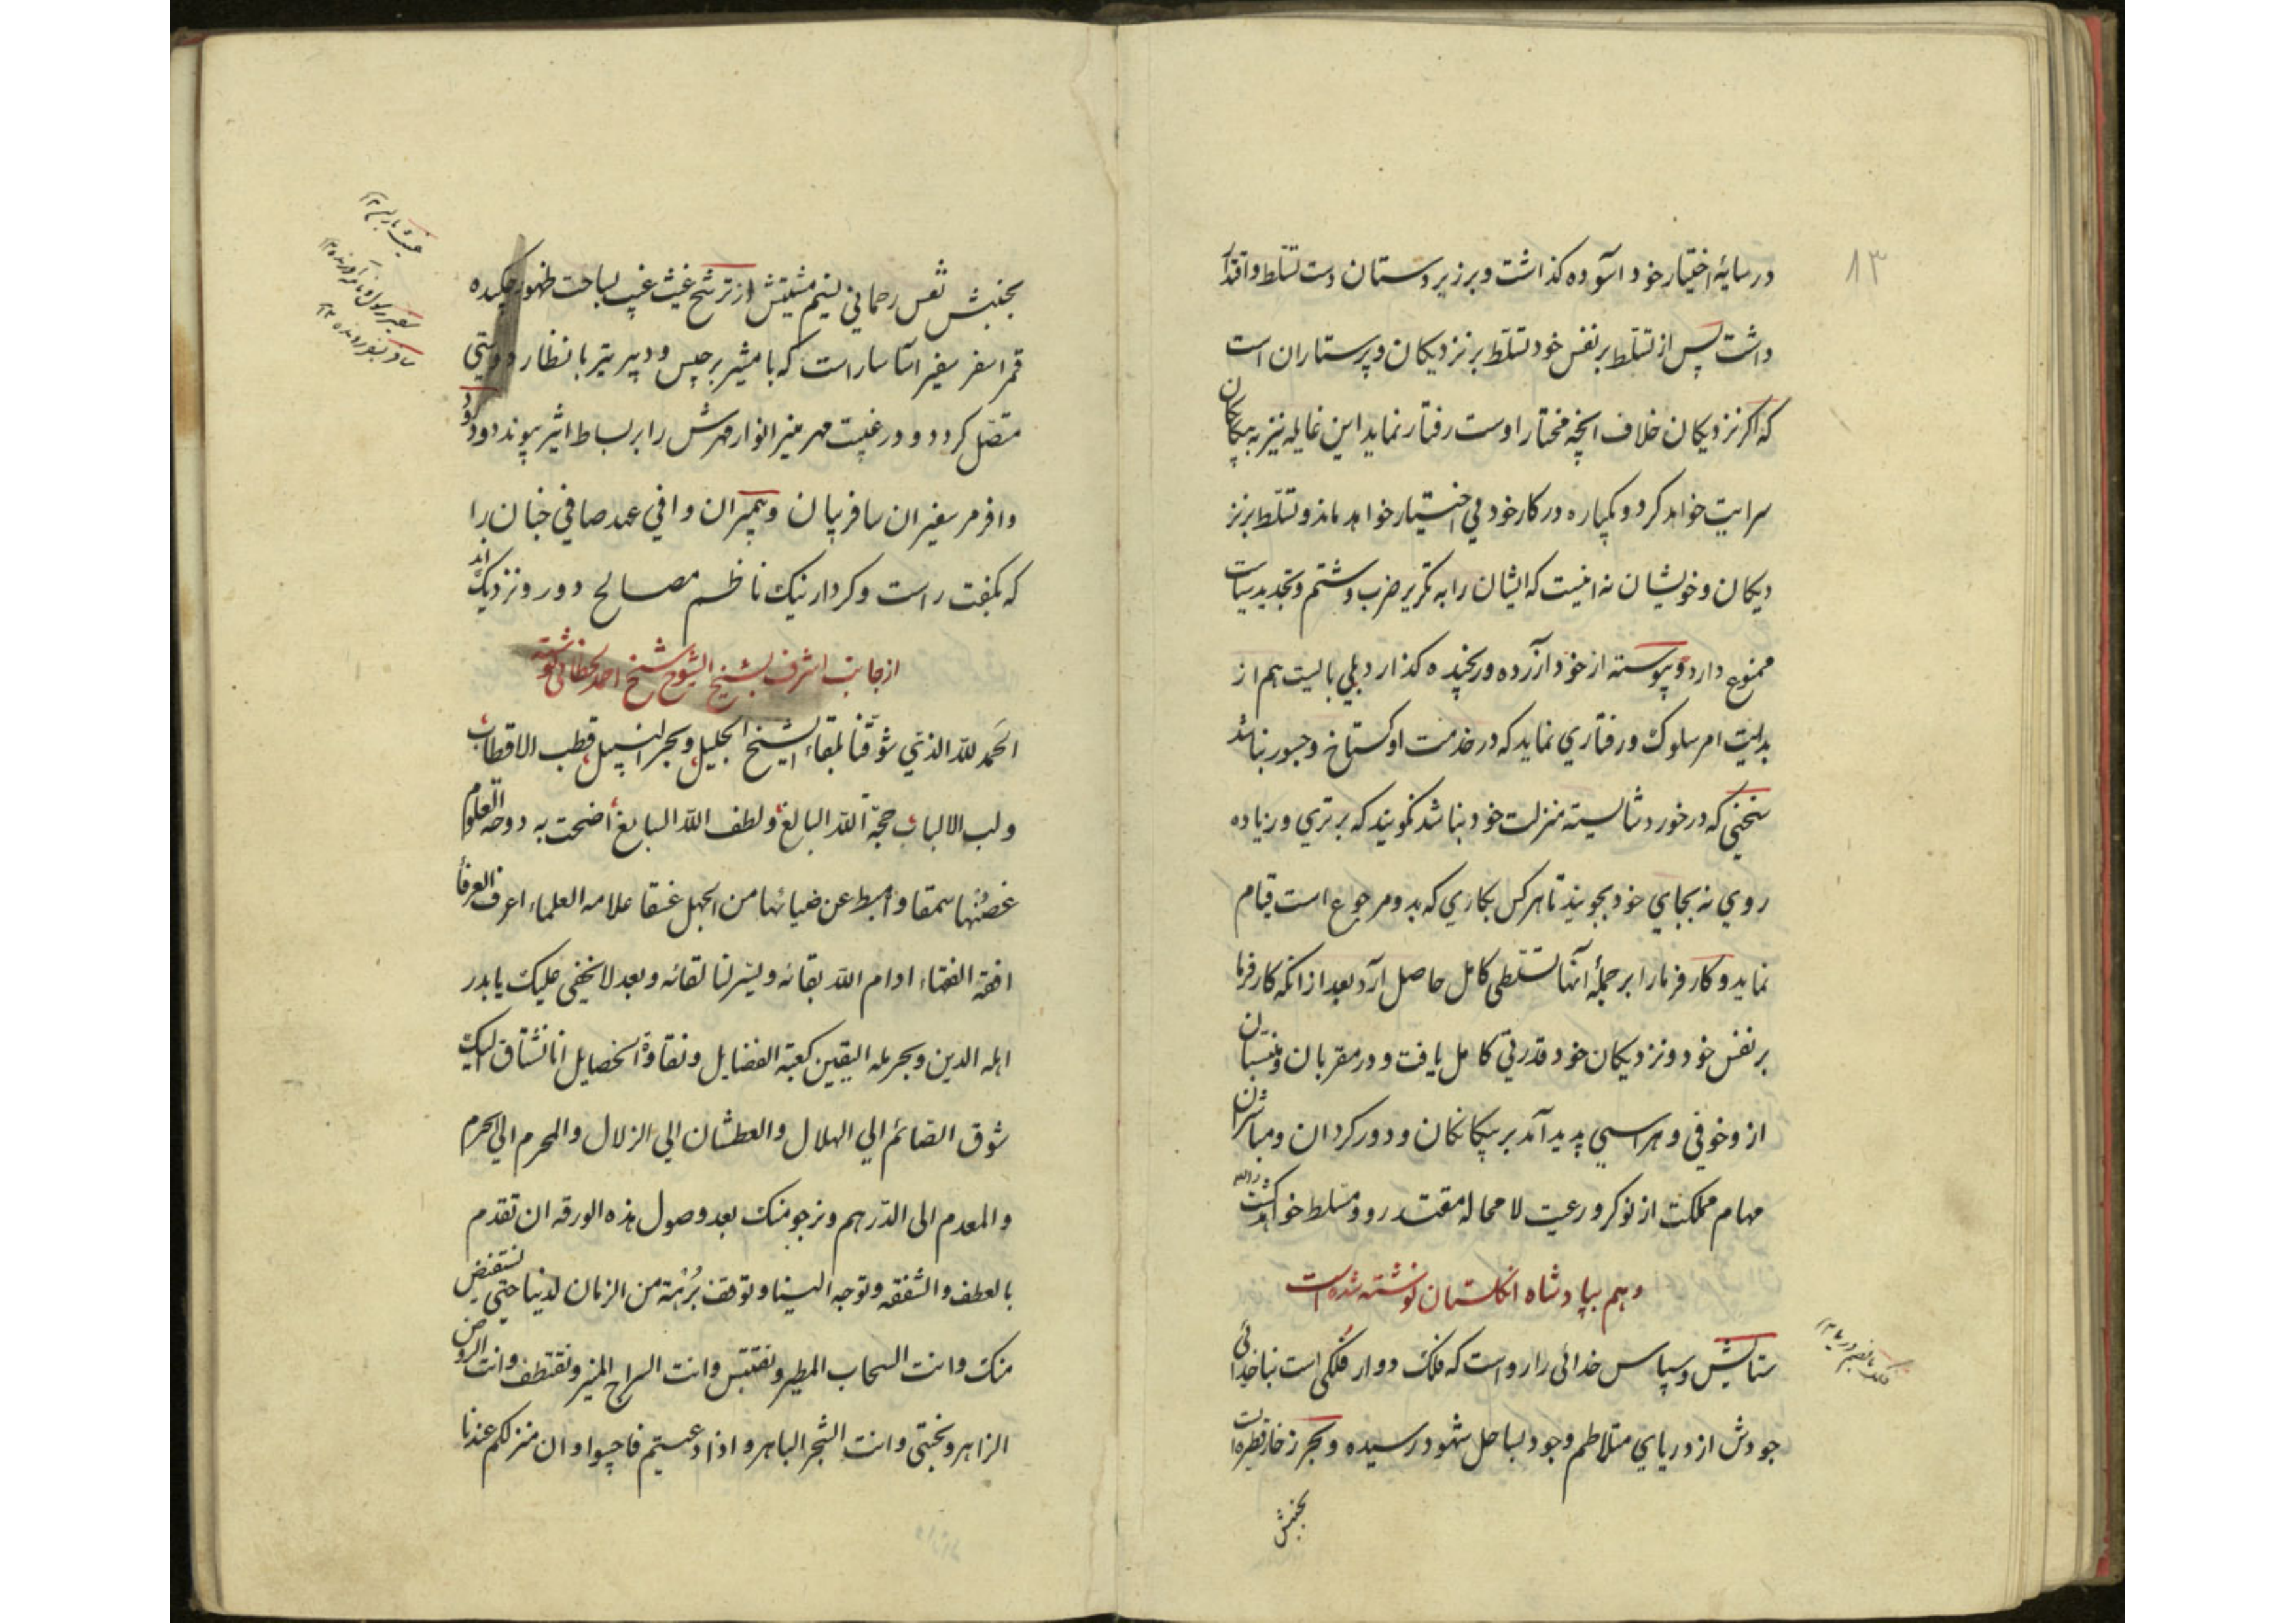 ۸۳
در سایهٔ اختیار خود آسوده کذاشت و بر زیر دستان دست تسلط و اقتدار
داشت پس از تسلط بر نفس خود تسلط بر نزدیکان و پرستاران است
که اکر نزدیکان خلاف آنچه مختار اوست رفتار نماید این غایله نیز به بیکانکان
سرایت خواهد کرد و یکباره در کار خود بی اختیار خواهد ماند و تسلط بر نز
دیکان و خویشان نه اینست که ایشان را به تکریر ضرب و شتم و تجدید سیاست
ممنوع دارد و پیوسته از خود آزرده و رنجیده کذارد بلی بایست هم از
بدایت امر سلوک و رفتاری نماید که در خدمت او کستاخ و جسور نباشد
سخنی که در خورد شایسته منزلت خود نباشد نکویند که برتری و زیاده
روی نه بجای خود بجویند تا هر کس بکاری که بدو مرجوع است قیام
نماید و کارفرما را بر جملهٔ آنها تسلطی کامل حاصل آرد بعد از انکه کارفرما
بر نفس خود و نزدیکان خود قدرتی کامل یافت و در مقربان و منتسبان
از و خوفی و هراسی پدید آمد بر بیکانکان و دور کردان و مباشران
مهام مملکت از نوکر و رعیت لا محاله مقتدر و مسلط خواهد کشت
و هم بپادشاه انکلستان نوشته شده است
ستایش و سپاس خدائی را رواست که فلک دوار فلکی است بناخدائی
جودش از دریای متلاطم وجود بساحل شهود رسیده و بحر زخار قطره است
بجنبش
بجنبش نفس رحمانی نسیم مشیتش از ترشح غیث غیب بساحت ظهور چکیده
قمر اسفر سفیر آسا ساراست که با مشیر برجیس و دبیر تیر با نظار دوستی
متصل کردد و در غیبت مهر منیر انوار مهرش را بر بساط اثیر پیوند درود
وافر مر سفیران سافر بیان و پیمبران وافی عهد صافی جنان را
که بکفت راست و کردار نیک ناظم مصالح دور و نزدیک اند
از جانب اشرف بشیخ الشیوخ شیخ احمد نوشته
الحمد للّه الذی شوّقنا بلقاء الشیخ الجلیل و بحر النبیل قطب الاقطاب
و لب الالباب حجة اللّه البالغ و لطف اللّه السابغ اضحت به دوحة العلوم
غصنها سمقا و امیط عن ضیائها من الجهل غسقا علامه العلماء اعرف العرفاء
افقه الفقهاء ادام اللّه بقائه و یسّر لنا لقائه و بعد لا یخفی علیک یا بدر
اهله الدین و بحر مله الیقین کعبة الفضایل و نقاوة الخصایل انا نشتاق الیک
شوق الصائم الی الهلال و العطشان الی الزلال و المحرم الی الحرم
و المعدم الی الدّرهم و نرجو منک بعد وصول هذه الورقه ان تقدم
بالعطف و الشفقه و توجه الینا و توقف بُرْهَة من الزمان لدینا حتی نستفیض
منک و انت السحاب المطیر و نقتبس و انت السراج المنیر و نقتطف و انت الروض
الزاهر و نجتنی و انت الشجر الباهر و اذا دعیتم فاجیبوا و ان منزلکم عندنا